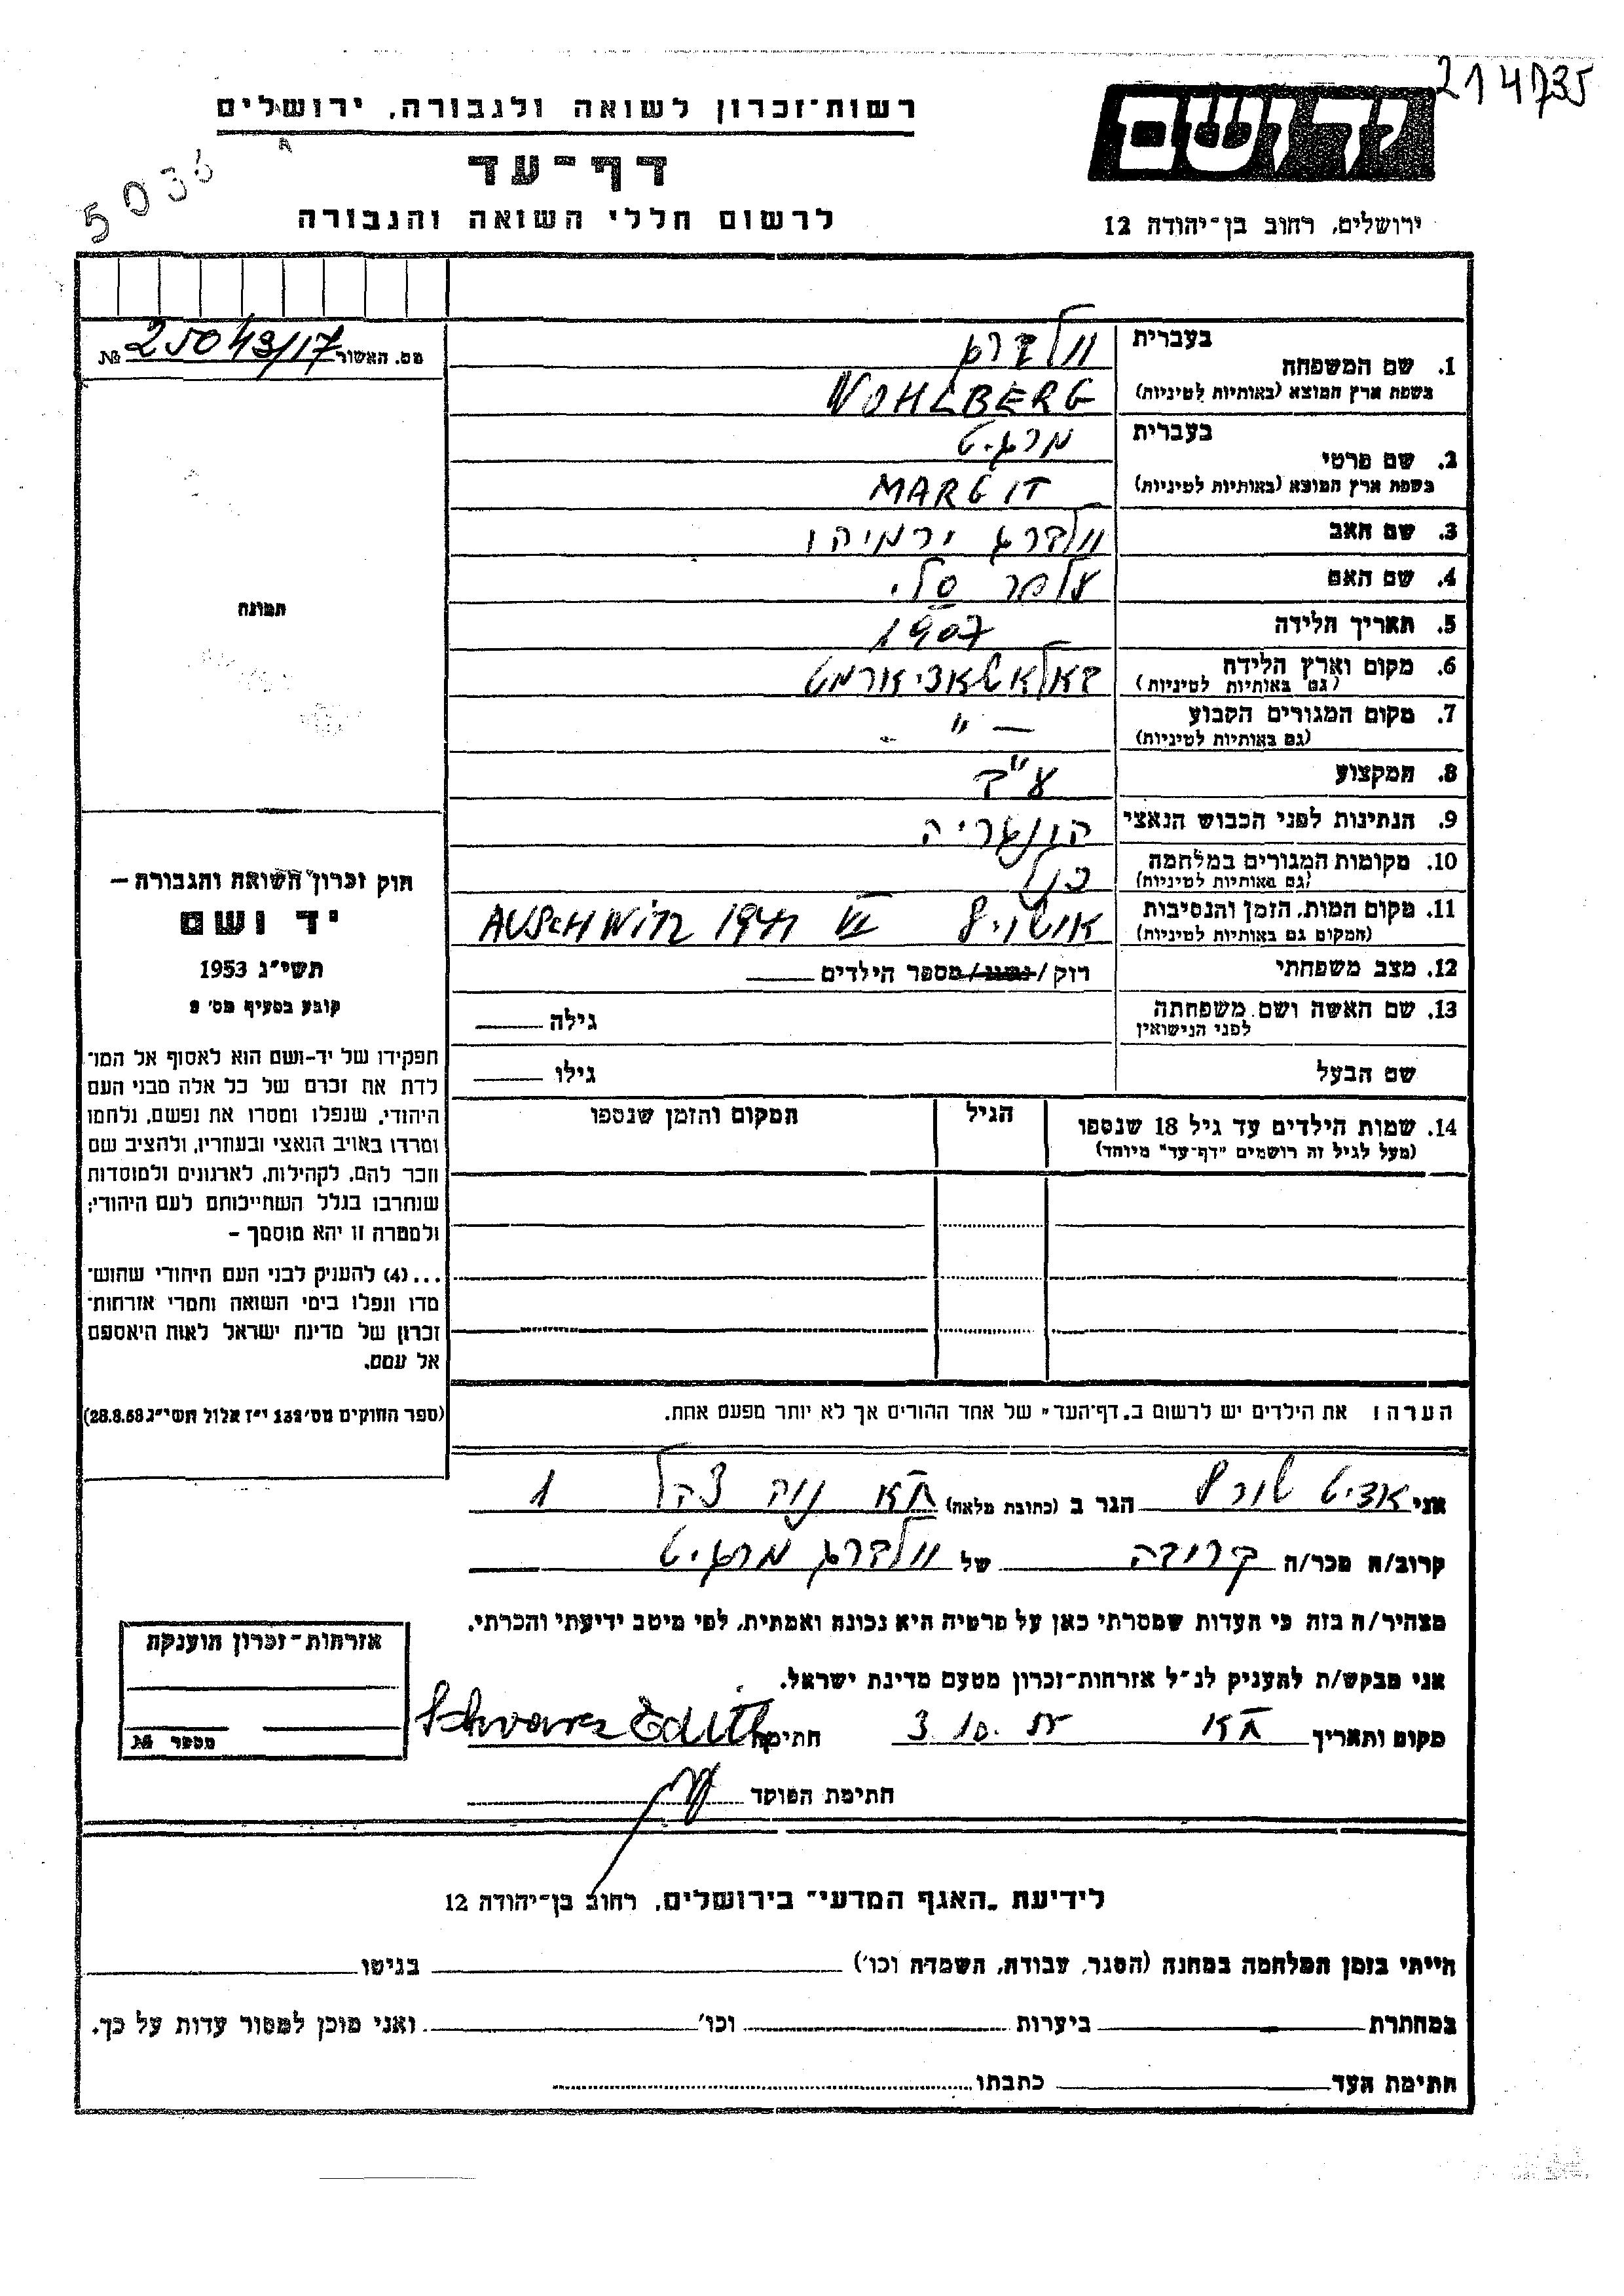 214735
רשות-זכרון לשואה ולגבורה, ירושלים
יד ושם
דף-עד
לרשום חללי השואה והגבורה
ירושלים, רחוב בן-יהודה 12
מס. האשור № 25043/17
1. שם המשפחה
בעברית
וולברג
בשפת ארץ המוצא (באותיות לטיניות)
WOHLBERG
2. שם פרטי
בעברית
מרגיט
בשפת ארץ המוצא (באותיות לטיניות)
MARGIT
3. שם האב
וולברג ירמיהו
4. שם האם
סלי
5. תאריך הלידה
1907
6. מקום וארץ הלידה
(גם באותיות לטיניות)
7. מקום המגורים הקבוע
(גם באותיות לטיניות)
— " —
8. המקצוע
9. הנתינות לפני הכבוש הנאצי
הונגריה
10. מקומות המגורים במלחמה
(גם באותיות לטיניות)
כנ"ל
11. מקום המות, הזמן והנסיבות
(המקום גם באותיות לטיניות)
אושויץ VI AUSCHWITZ 1944
12. מצב משפחתי
רוק / נשוי / מספר הילדים
13. שם האשה ושם משפחתה
לפני הנישואין
גילה
שם הבעל
גילו
תמונה
חוק זכרון השואה והגבורה –
יד ושם
תשי"ג 1953
קובע בסעיף מס' 2
תפקידו של יד-ושם הוא לאסוף אל המו־
לדת את זכרם של כל אלה מבני העם
היהודי, שנפלו ומסרו את נפשם, נלחמו
ומרדו באויב הנאצי ובעוזריו, ולהציב שם
וזכר להם, לקהילות, לארגונים ולמוסדות
שנחרבו בגלל השתייכותם לעם היהודי;
ולמטרה זו יהא מוסמך –
...(4) להעניק לבני העם היהודי שהוש־
מדו ונפלו בימי השואה והמרי אזרחות־
זכרון של מדינת ישראל לאות היאספם
אל עמם.
(ספר החוקים מס' 132 י"ז אלול תשי"ג 28.8.53)
14. שמות הילדים עד גיל 18 שנספו
(מעל לגיל זה רושמים "דף-עד" מיוחד)
הגיל
המקום והזמן שנספו
הערה: את הילדים יש לרשום ב"דף-העד" של אחד ההורים אך לא יותר מפעם אחת.
אני אדיט שורץ הגר ב (כתובת מלאה) ת"א נוה צהל 1
קרוב/ה מכר/ה קרובה של וולברג מרגיט
מצהיר/ה בזה כי העדות שמסרתי כאן על פרטיה היא נכונה ואמתית, לפי מיטב ידיעתי והכרתי.
אני מבקש/ת להעניק לנ"ל אזרחות-זכרון מטעם מדינת ישראל.
מקום ותאריך ת"א 3.10. חתימה Schwarz Edith
חתימת הפוקד
אזרחות-זכרון הוענקה
מספר №
לידיעת "האגף המדעי" בירושלים, רחוב בן-יהודה 12
הייתי בזמן המלחמה במחנה (הסגר, עבודה, השמדה וכו') בגיטו
במחתרת ביערות וכו' ואני מוכן למסור עדות על כך.
חתימת העד כתבתו